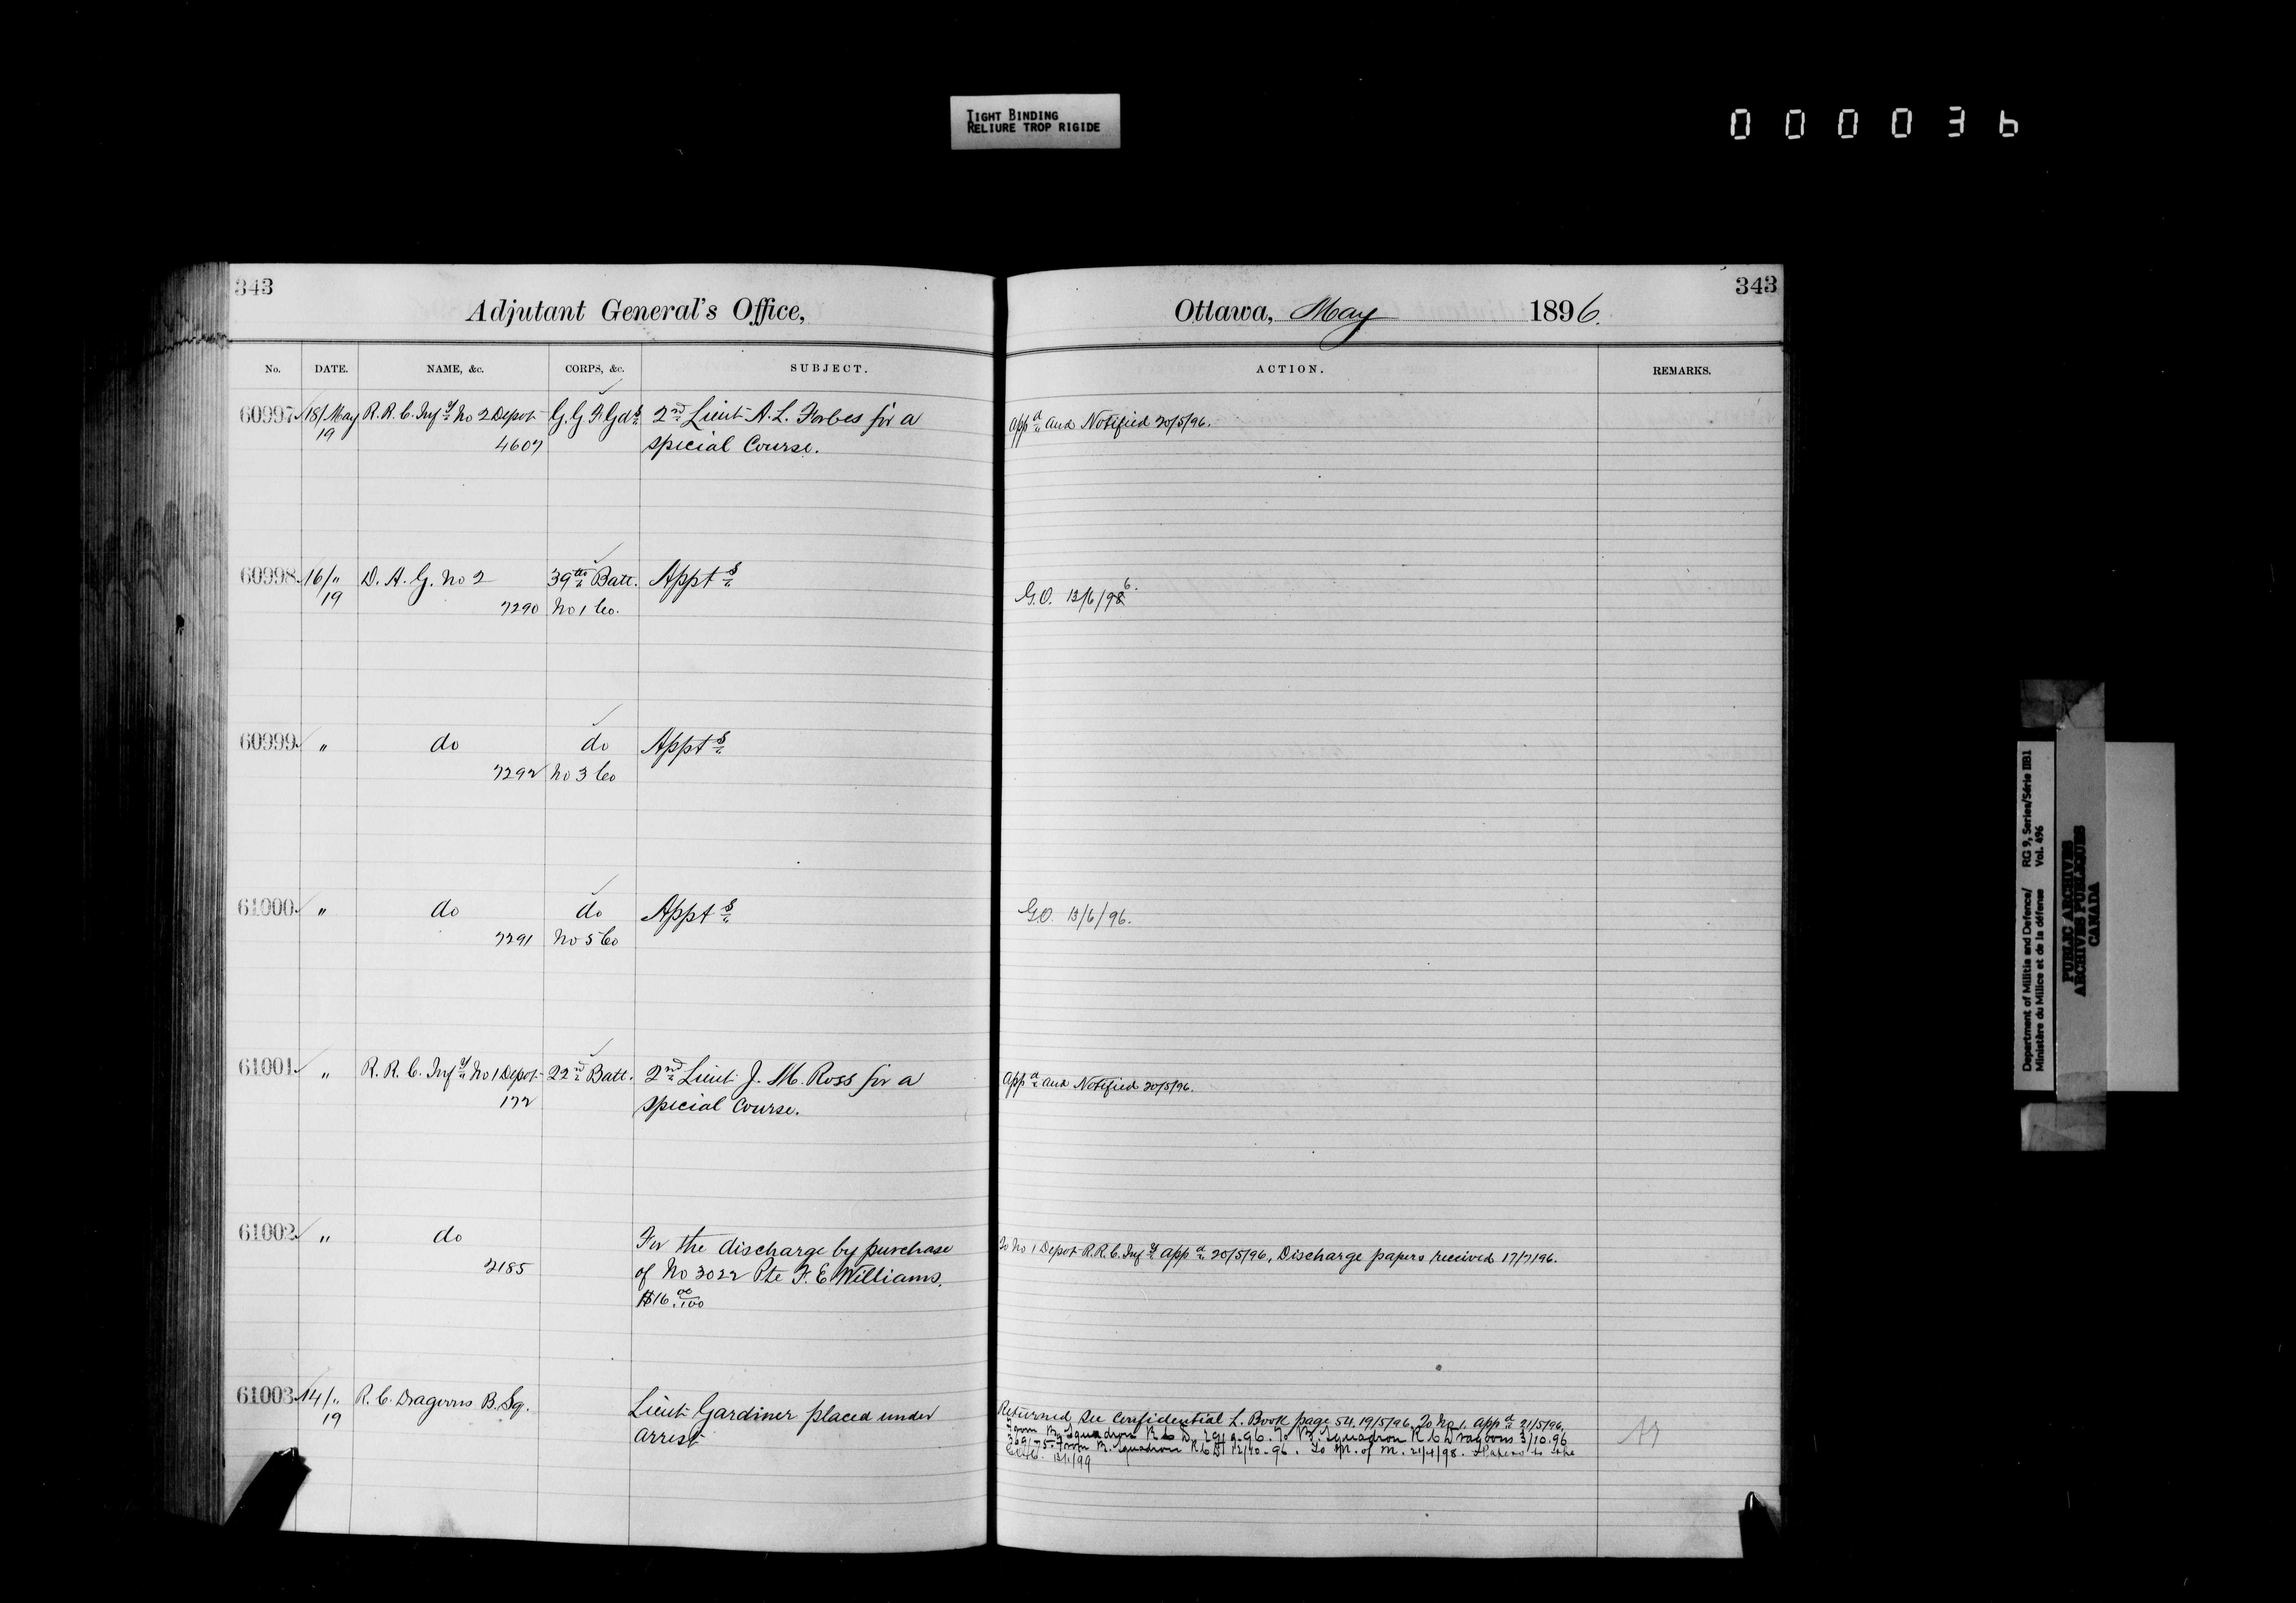 TIGHT BINDING
RELIURE TROP RIGIDE
000036
343
Adjutant General's Office,
No. DATE. NAME, &c. CORPS, &c. SUBJECT.
60997 18/May R.R.C. Infy No 2 Depot G.G.F.Gds 2nd Lieut A.L. Forbes for a
19 4607 special Course.
60998 16/" D.A.G. No 2 39th Batt. Appts
19 7290 No 1 Co.
60999 " do do Appts
7292 No 3 Co
61000 " do do Appts
7291 No 5 Co
61001 " R.R.C. Infy No 1 Depot 22nd Batt. 2nd Lieut J. M. Ross for a
172 special Course.
61002 " do For the discharge by purchase
2185 of No 3022 Pte F. E. Williams.
$16.00/100
61003 14/" R.C. Dragoons B. Sq. Lieut Gardiner placed under
19 arrest
343
Ottawa, May 1896.
ACTION. REMARKS.
appd and Notified 20/5/96.
G.O. 13/6/986.
G.O. 13/6/96.
appd and Notified 20/5/96.
To No 1 Depot R.R.C. Infy appd 20/5/96, Discharge papers received 17/7/96.
Returned See Confidential L. Book page 54. 19/5/96. To No 1. appd 21/5/96.
From B. Squadron R C D. 29/9-96. To B. Squadron R C Dragoons 3/10.96
From B. Squadron R C D 12/10-96. To M. of M. 21/4/98. Papers to the
12/1/99
Department of Militia and Defence/ RG 9, Series/Série IIB1
Ministère du Milice et de la défense Vol. 496
PUBLIC ARCHIVES
ARCHIVES PUBLIQUES
CANADA